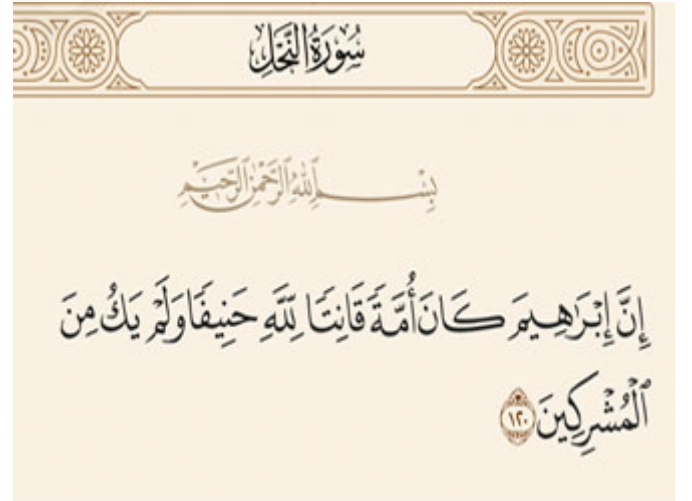 سُورَةُ النَّحْلِ
بِسْمِ اللَّهِ الرَّحْمَٰنِ الرَّحِيمِ
إِنَّ إِبْرَٰهِيمَ كَانَ أُمَّةً قَانِتًا لِّلَّهِ حَنِيفًا وَلَمْ يَكُ مِنَ
ٱلْمُشْرِكِينَ ١٢٠